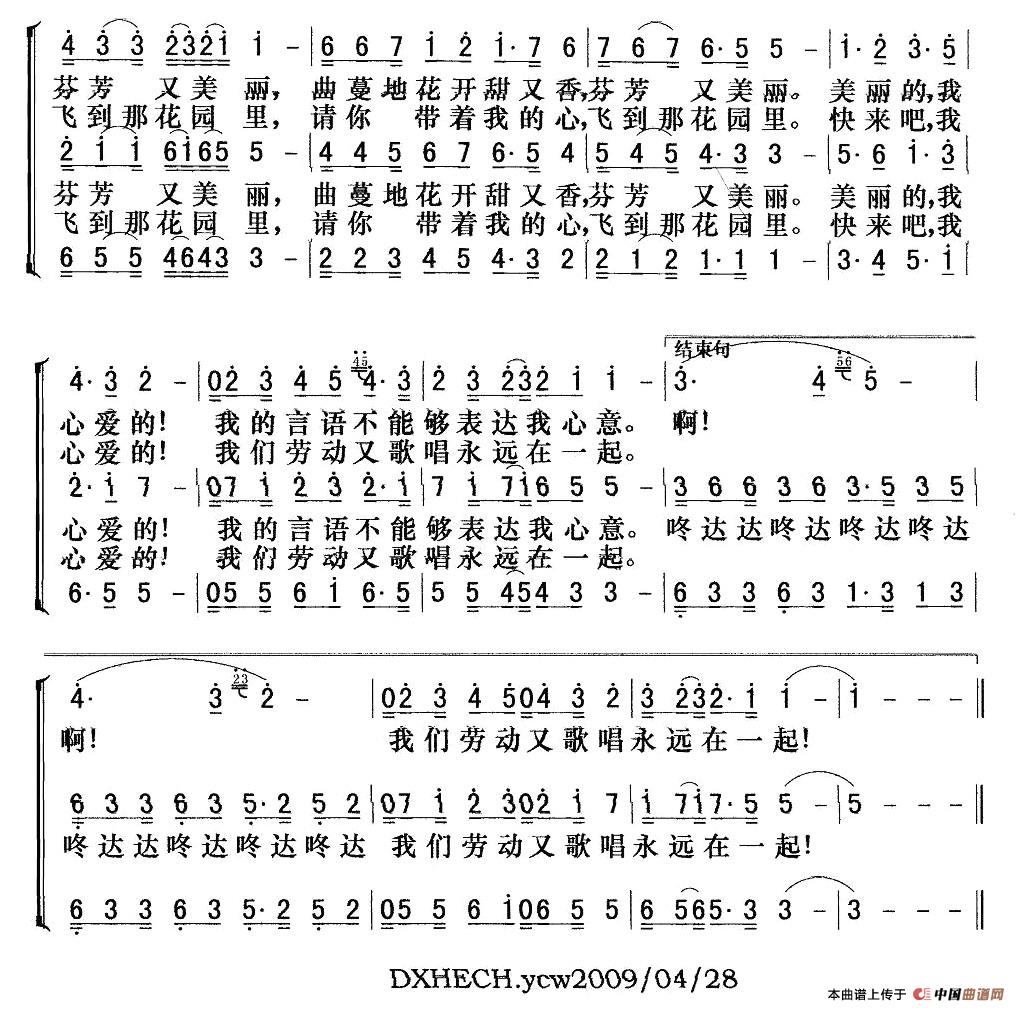 4 3 3 2321 1 – | 6 6 7 1 2 1· 7 6 | 7 6 7 6· 5 5 – | 1· 2 3· 5
芬芳 又美丽, 曲蔓地花开甜又香,芬芳 又美丽。 美丽的,我
飞到那花园里, 请你 带着我的心,飞到那花园里。 快来吧,我
2 1 1 6165 5 – | 4 4 5 6 7 6· 5 4 | 5 4 5 4· 3 3 – | 5· 6 1· 3
芬芳 又美丽, 曲蔓地花开甜又香,芬芳 又美丽。 美丽的,我
飞到那花园里, 请你 带着我的心,飞到那花园里。 快来吧,我
6 5 5 4643 3 – | 2 2 3 4 5 4· 3 2 | 2 1 2 1· 1 1 – | 3· 4 5· 1
结束句
4· 3 2 – | 02 3 4 5 45 4· 3 | 2 3 232 1 1 – | 3· 4 56 5 –
心爱的! 我的言语不能够表达我心意。 啊!
心爱的! 我们劳动又歌唱永远在一起。
2· 1 7 – | 07 1 2 3 2· 1 | 7 1 716 5 5 – | 3 6 6 3 6 3· 5 3 5
心爱的! 我的言语不能够表达我心意。 咚达达咚达咚达咚达
心爱的! 我们劳动又歌唱永远在一起。
6· 5 5 – | 05 5 6 1 6· 5 | 5 5 454 3 3 – | 6 3 3 6 3 1· 3 1 3
4· 3 23 2 – | 02 3 4 504 3 2 | 3 232· 1 1 – | 1 – – ‖
啊! 我们劳动又歌唱永远在一起!
6 3 3 6 3 5· 2 5 2 | 07 1 2 302 1 7 | 1 717· 5 5 – | 5 – – ‖
咚达达咚达咚达咚达 我们劳动又歌唱永远在一起!
6 3 3 6 3 5· 2 5 2 | 05 5 6 106 5 5 | 6 565· 3 3 – | 3 – – ‖
DXHECH.ycw2009/04/28
本曲谱上传于 中国曲谱网